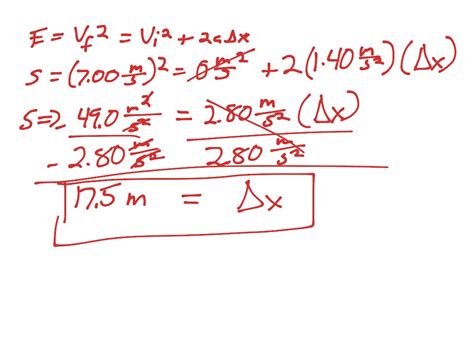 E = Vf² = Vi² + 2aΔx
S = (7.00 m/s)² = 0 m/s² + 2(1.40 m/s²)(Δx)
S=> 49.0 m²/s² = 2.80 m/s² (Δx)
- 2.80 m/s² 2.80 m/s²
17.5 m = Δx